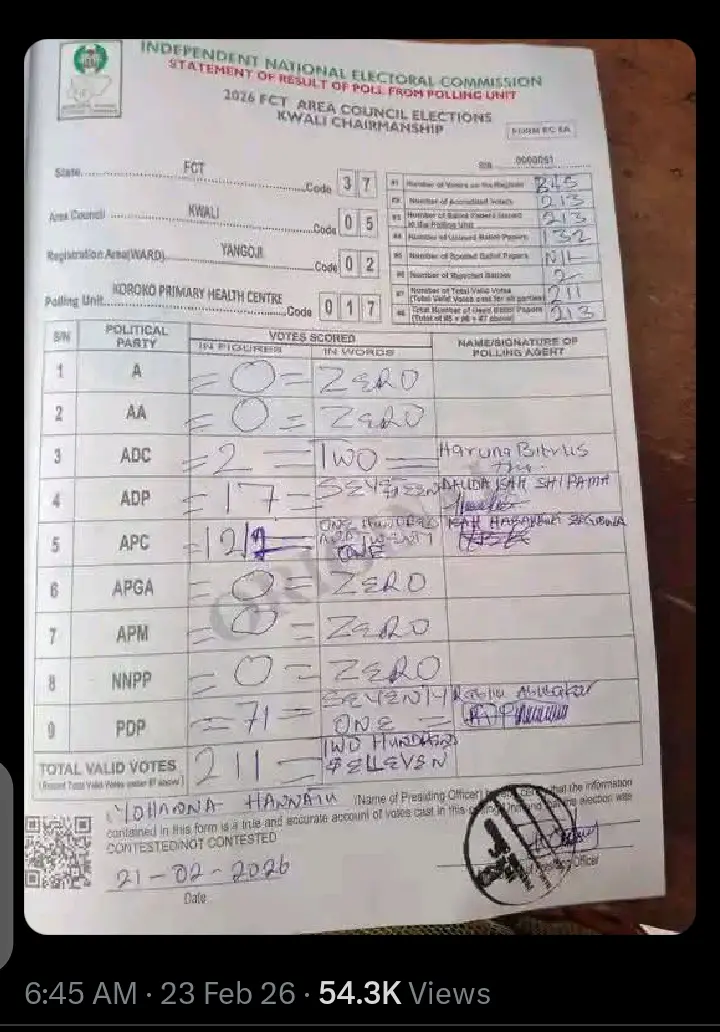 INDEPENDENT NATIONAL ELECTORAL COMMISSION
STATEMENT OF RESULT OF POLL FROM POLLING UNIT
2026 FCT AREA COUNCIL ELECTIONS
KWALI CHAIRMANSHIP
FORM EC 8A
State FCT Code 3 7
Area Council KWALI Code 0 5
Registration Area(WARD) YANGOJI Code 0 2
Polling Unit KOROKO PRIMARY HEALTH CENTRE Code 0 1 7
S/N 0000051
#1 Number of Voters on the Register 345
#2 Number of Accredited Voters 213
#3 Number of Ballot Papers Issued to the Polling Unit 213
#4 Number of Unused Ballot Papers 132
#5 Number of Spoiled Ballot Papers NIL
#6 Number of Rejected Ballots 2
#7 Number of Total Valid Votes (Total Valid Votes cast for all parties) 211
#8 Total Number of Used Ballot Papers (Total of #5 + #6 + #7 above) 213
S/N POLITICAL PARTY VOTES SCORED NAME/SIGNATURE OF POLLING AGENT
IN FIGURES IN WORDS
1 A = 0 = ZERO
2 AA = 0 = ZERO
3 ADC = 2 = TWO Haruna Bitrus
4 ADP = 17 = ISAH
5 APC = 12 ONE HUNDRED AND TWENTY ONE ISAH
6 APGA = 0 = ZERO
7 APM = 0 = ZERO
8 NNPP = 0 = ZERO
9 PDP = 71 = SEVENTY ONE =
TOTAL VALID VOTES 211 = TWO HUNDRED
ORIGINAL
(Name of Presiding Officer) that the information
contained in this form is a true and accurate account of votes cast in this election was
CONTESTED/NOT CONTESTED
21-02-2026
Date
Officer
6:45 AM · 23 Feb 26 · 54.3K Views